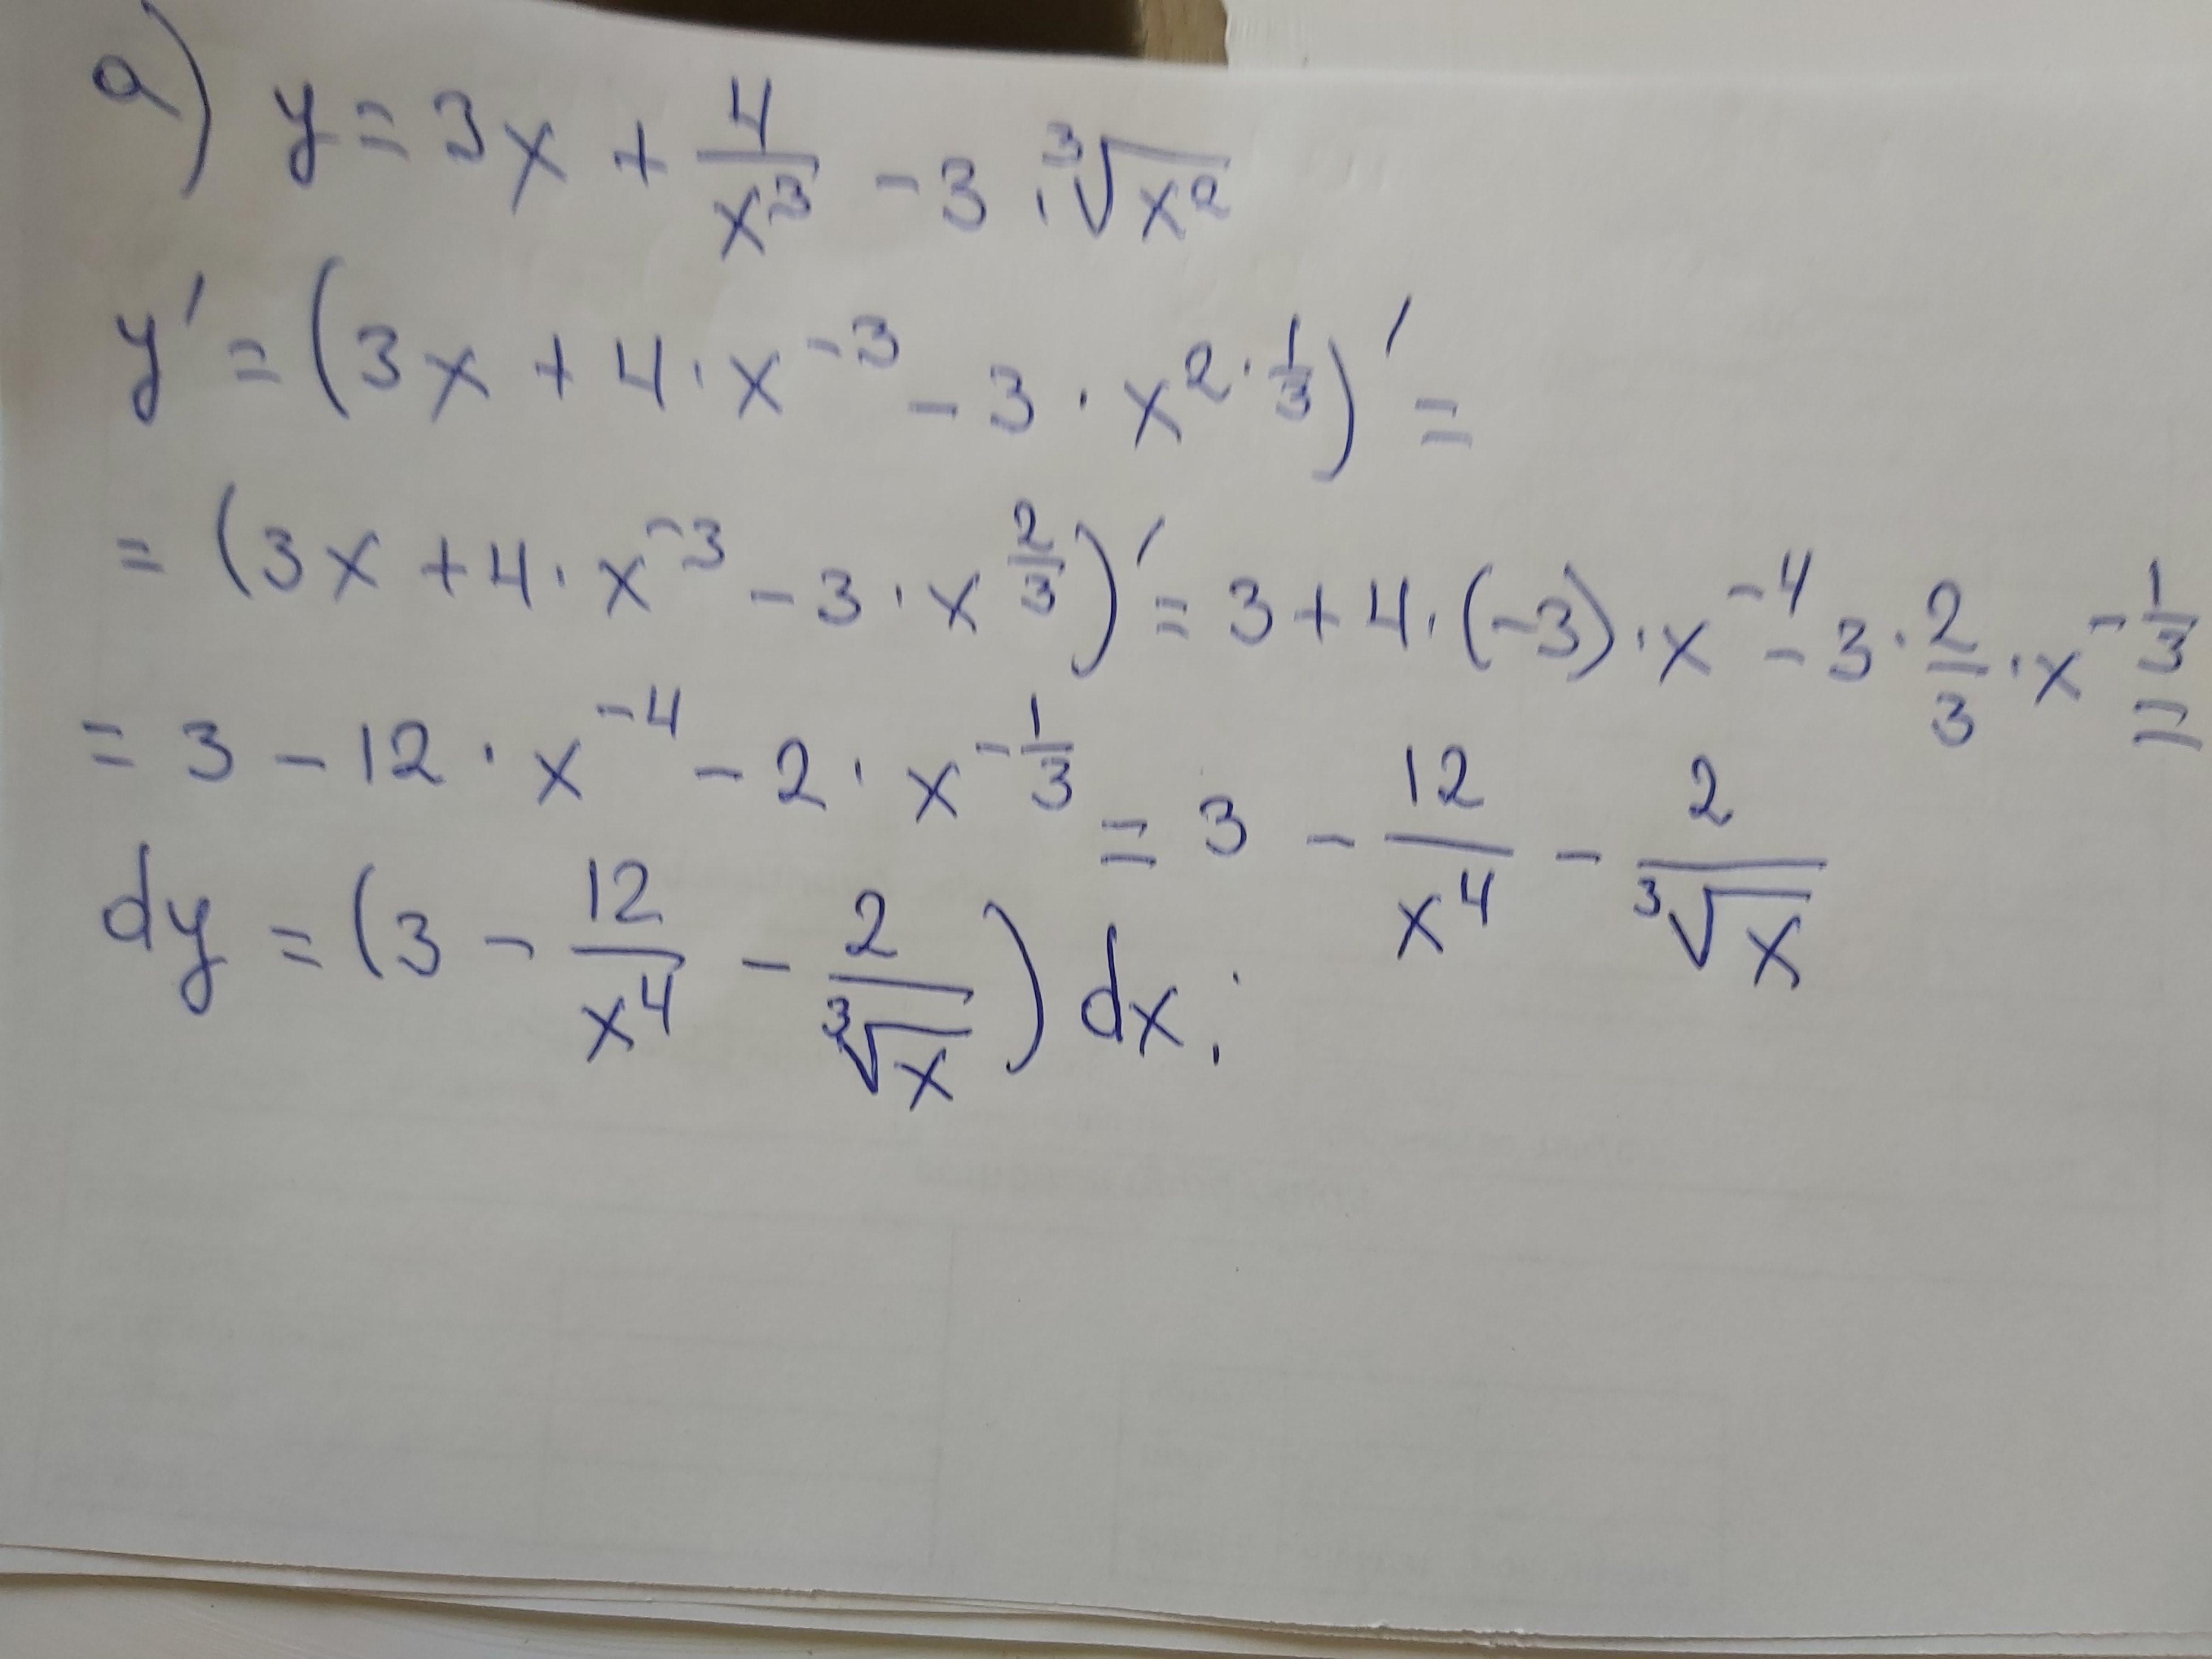 a) y = 3x + 4/x³ - 3 · ∛x²
y' = (3x + 4 · x⁻³ - 3 · x^(2 · 1/3))' =
= (3x + 4 · x⁻³ - 3 · x^(2/3))' = 3 + 4 · (-3) · x⁻⁴ - 3 · 2/3 · x^(-1/3) =
= 3 - 12 · x⁻⁴ - 2 · x^(-1/3) = 3 - 12/x⁴ - 2/∛x
dy = (3 - 12/x⁴ - 2/∛x) dx;